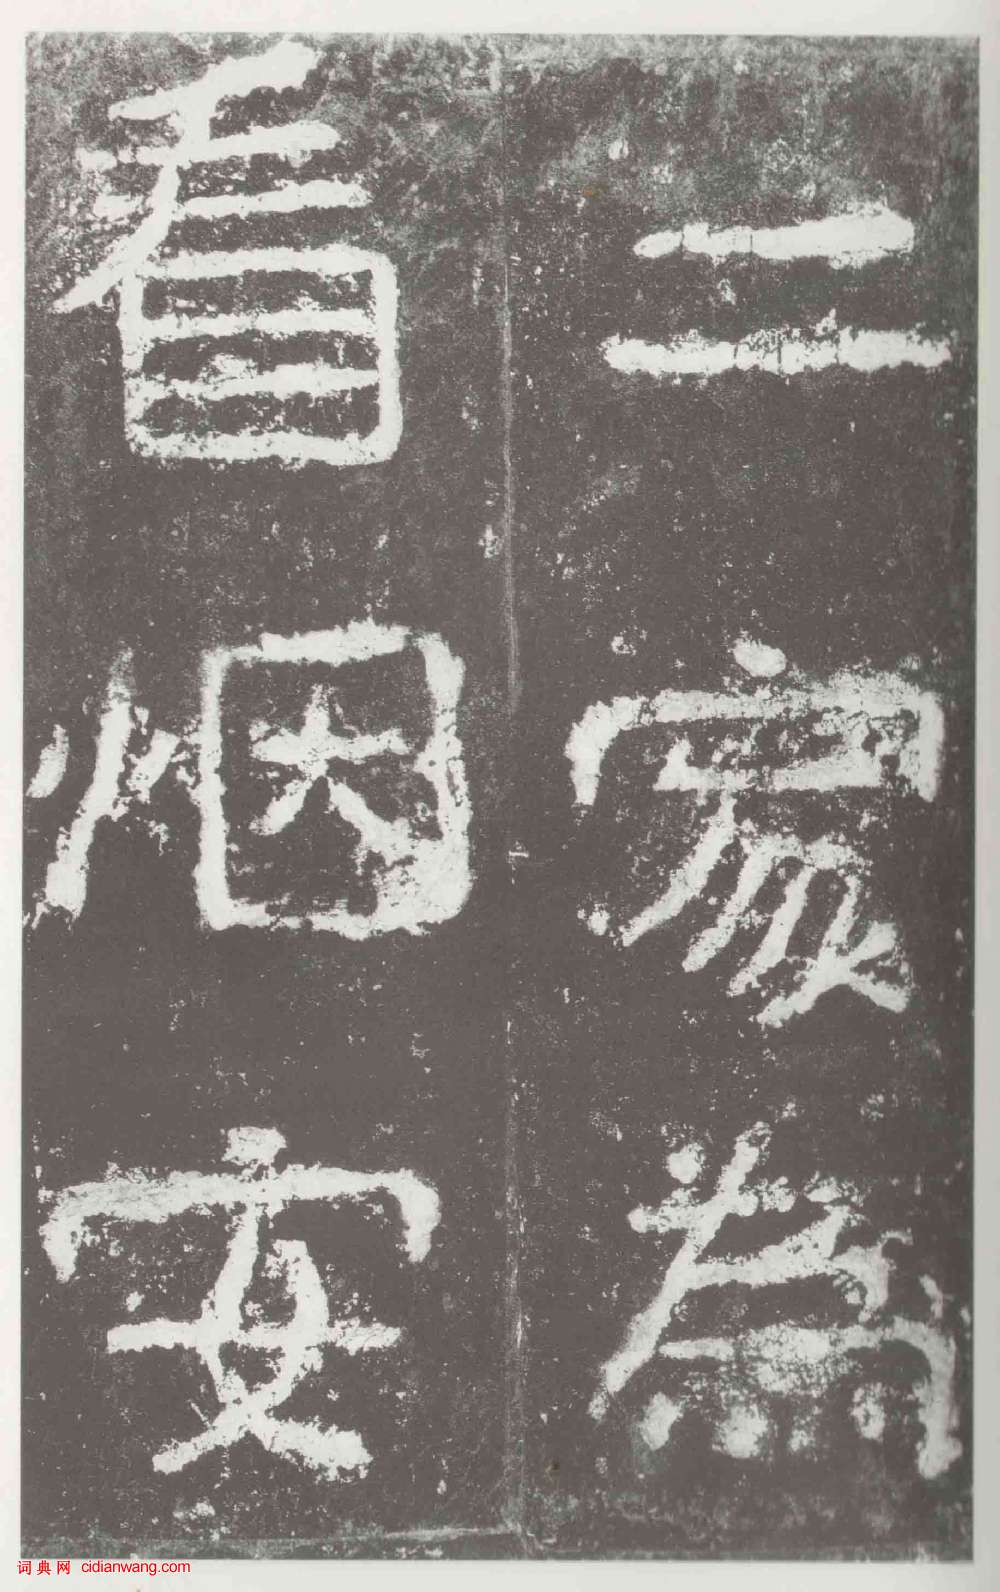 二家為
看烟安
词典网 cidianwang.com